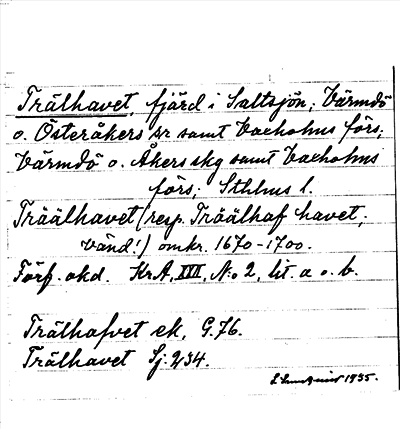 Trälhavet, fjärd i Saltsjön; Värmdö
o. Österåkers sr samt Vaxholms förs;
Värmdö o. Åkers skg samt Vaxholms
förs; Sthlms l.
Träälhavet (resp. Träälhaf havet;
vänd!) omkr. 1670-1700.
Förf. okd. KrA, XIII, No 2, lit. a o. b.
Trälhafvet ek, G.76.
Trälhavet Sj: 234.
1935.